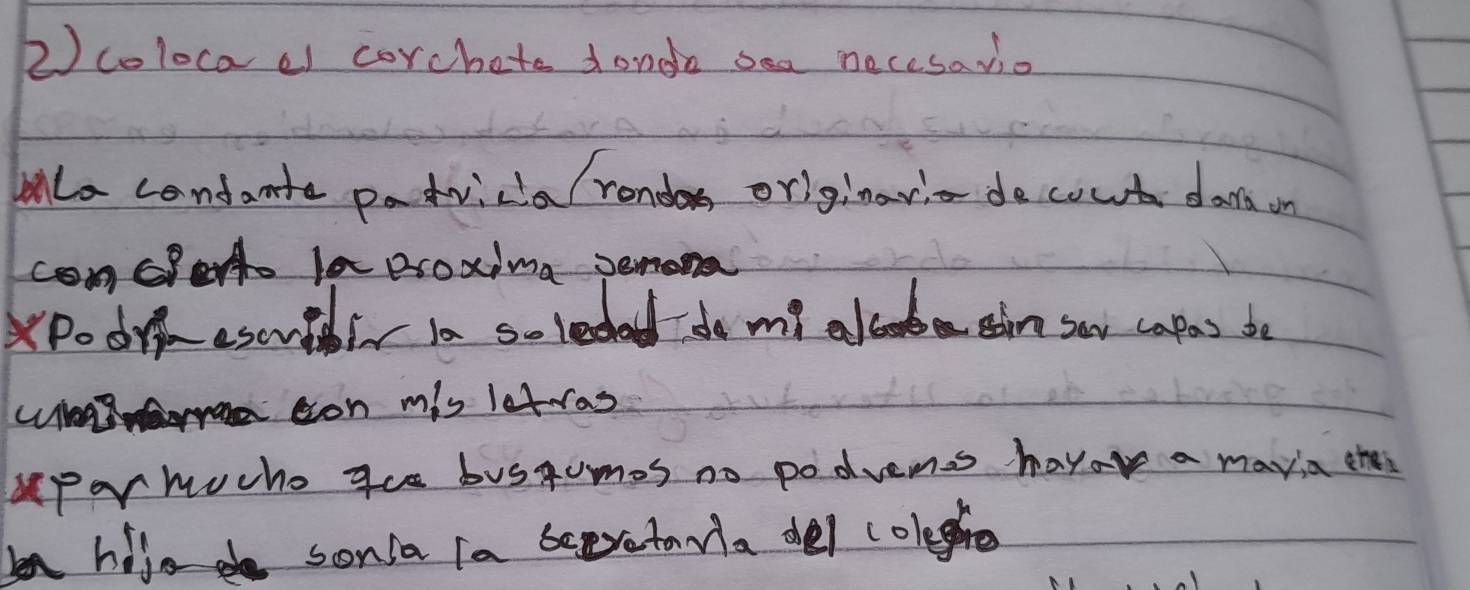 2) coloca el corchete donde sea necesario
La cantante patricia (rondos originaria de cucuta dara un
concierto la proxima semana
x Podria escribir la soledad de mi alcoba sin ser capas de
con mis letras
x Par mucho que busqumos no podremos hayar a maria
la hija de sonia la secretaria del colegio